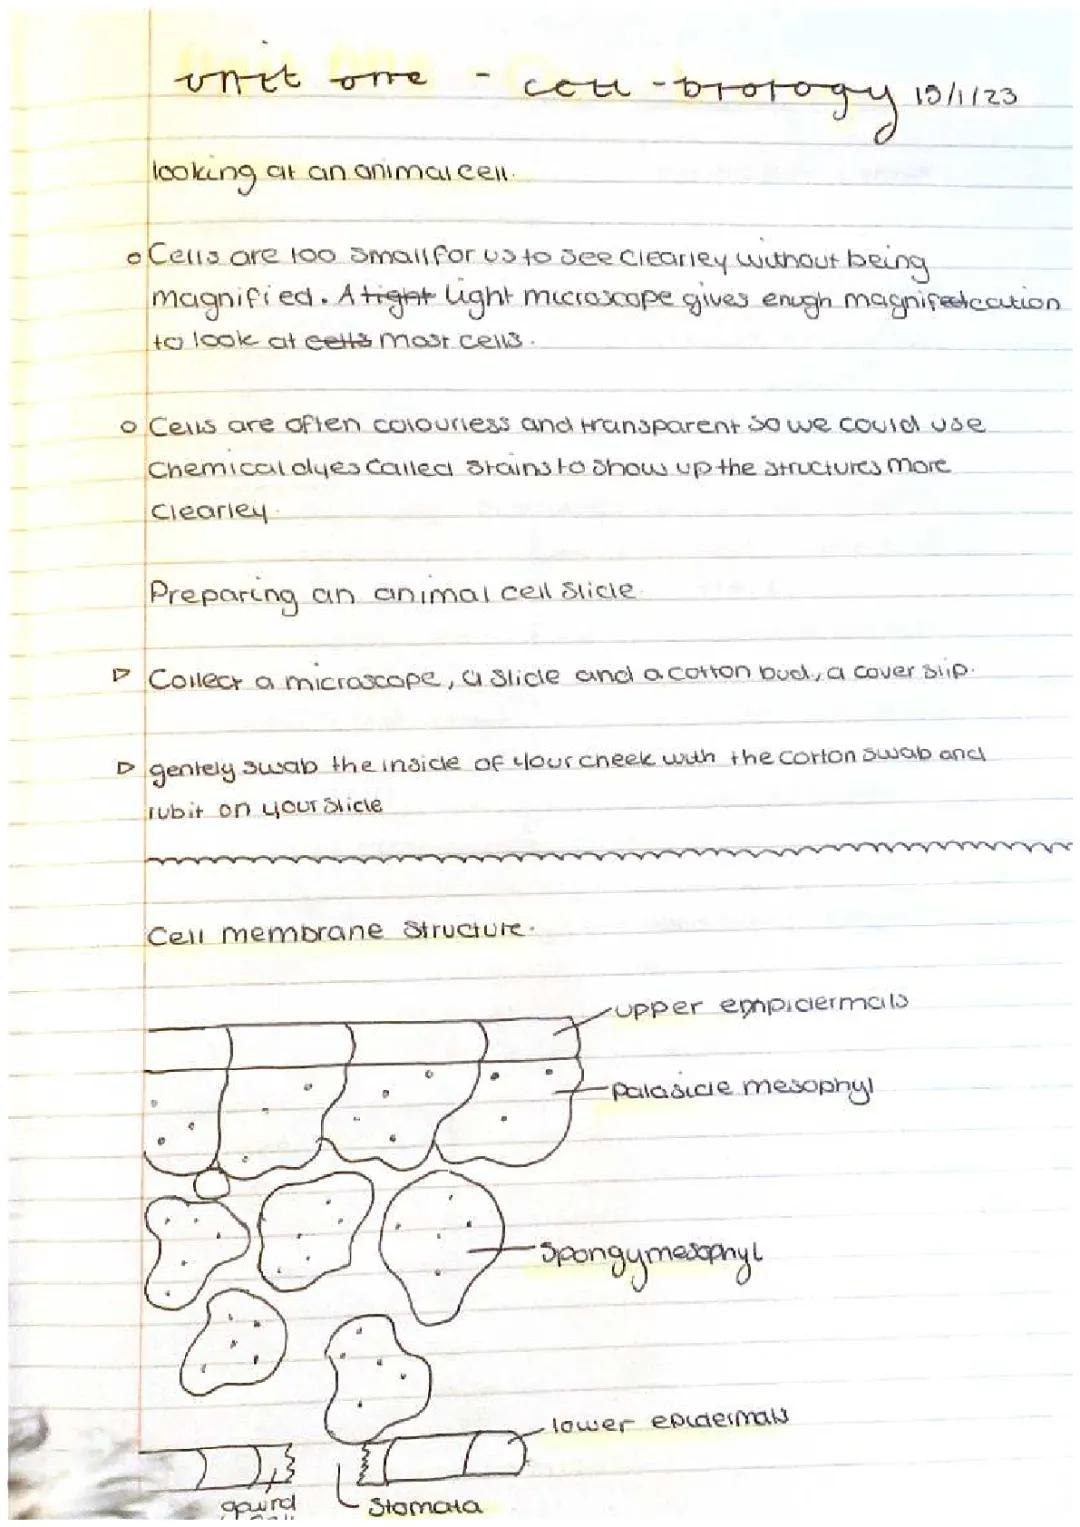 unit one - cell - biology 19/1/23
looking at an animal cell.
Cells are too small for us to see clearley without being
magnified. A light microscope gives enugh magnification
to look at cells most cells.
Cells are often colourless and transparent so we could use
chemical dyes called stains to show up the structures more
clearley.
Preparing an animal cell slide.
Collect a microscope, a slide and a cotton bud, a cover slip.
gentely swab the inside of your cheek with the cotton swab and
rub it on your slide
Cell membrane structure.
upper empidermals
palaside mesophyl
spongy mesophyl
lower epidermals
gaurd
stomata